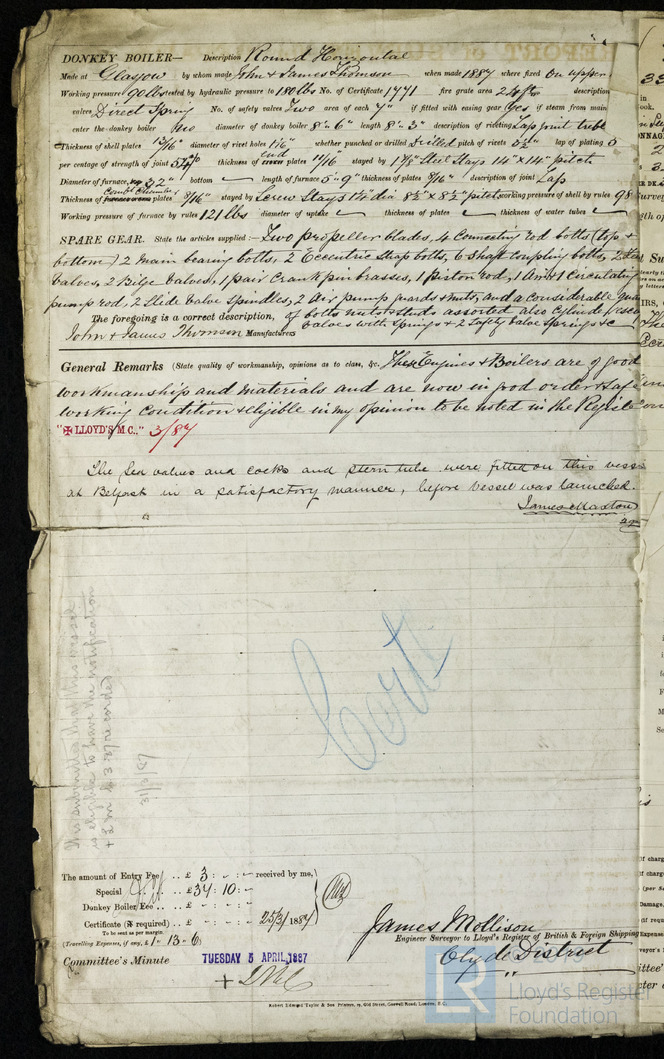 DONKEY BOILER— Description Round Horizontal
Made at Glasgow by whom made John & James Thomson when made 1887 where fixed On upper
Working pressure 90lbs tested by hydraulic pressure to 180lbs No. of Certificate 1771 fire grate area 24ft description
valves Direct Spring No. of safety valves Two area of each 7" if fitted with easing gear Yes if steam from main
enter the donkey boiler No diameter of donkey boiler 8'-6" length 8'-3" description of riveting Lap joint treble
Thickness of shell plates 13/16" diameter of rivet holes whether punched or drilled Drilled pitch of rivets lap of plating
per centage of strength of joint thickness of end crown plates 11/16 stayed by Steel Stays 14" x 14" pitch
Diameter of furnace, 32" bottom length of furnace 5'-9" thickness of plates 9/16" description of joint Lap
Thickness of Comb Chamber furnace crown plates 9/16" stayed by Screw Stays dia 8½" x 8½" pitch working pressure of shell by rules 98
Working pressure of furnace by rules 121lbs diameter of uptake thickness of plates thickness of water tubes
SPARE GEAR. State the articles supplied:— Two propeller blades, 4 Connecting rod bolts (top &
bottom) 2 Main bearing bolts, 2 Eccentric Strap bolts, 6 Shaft Coupling bolts, 2 Feed
Valves, 2 Bilge Valves, 1 pair Crank pin brasses, 1 Piston rod, 1 Air & 1 Circulating
pump rod, 2 Slide Valve Spindles, 2 Air pump guards & nuts, and a considerable
The foregoing is a correct description, of bolts nuts & studs assorted also Cylinder
John & James Thomson Manufacturers valves with Springs & 2 Safety Valve Springs &c
General Remarks (State quality of workmanship, opinions as to class, &c. These Engines & Boilers are of good
workmanship and materials and are now in good order & safe
working condition & eligible in my opinion to be noted in the Register
"✠ LLOYD'S M.C.." 3/87
The Sea valves and cocks and stern tube were fitted on this vessel
at Belfast in a satisfactory manner, before vessel was launched.
James Maxton
Cert
It is submitted that this vessel
is eligible to have the notification
+ L.M.C. 3.87 recorded
31/3/87
The amount of Entry Fee .. £ 3 : - : - received by me,
Special .. £ 34 : 10 : -
Donkey Boiler Fee .. £ - : - : -
Certificate (if required) .. £ - : - : - 25/3/1887
To be sent as per margin.
(Travelling Expenses, if any, £ 1 " 13 " 6)
James Mollison
Engineer Surveyor to Lloyd's Register of British & Foreign Shipping
Clyde District
Committee's Minute TUESDAY 5 APRIL 1887
+ LMC
Robert Edmund Taylor & Son Printers, 19, Old Street, Goswell Road, London, E.C.
LR
Lloyd's Register
Foundation